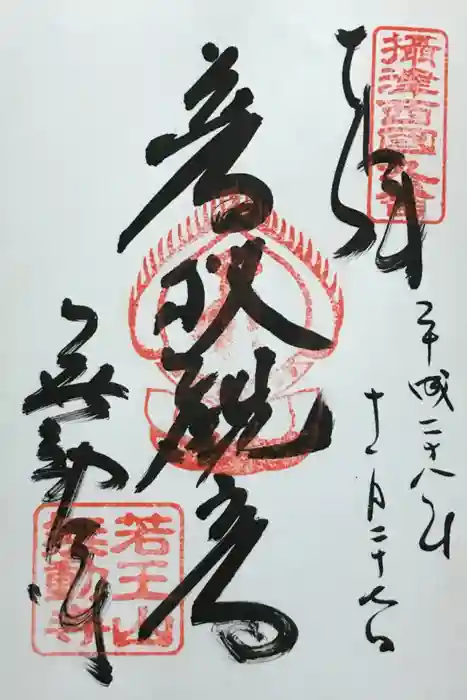 奉拝
攝津西國
平成二十八年
十一月二十七日
観音
無動寺
若王山
無動寺